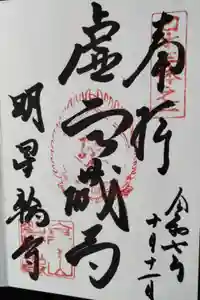 奉拝
令和七年
十月十一日
虚空蔵尊
明星輪寺